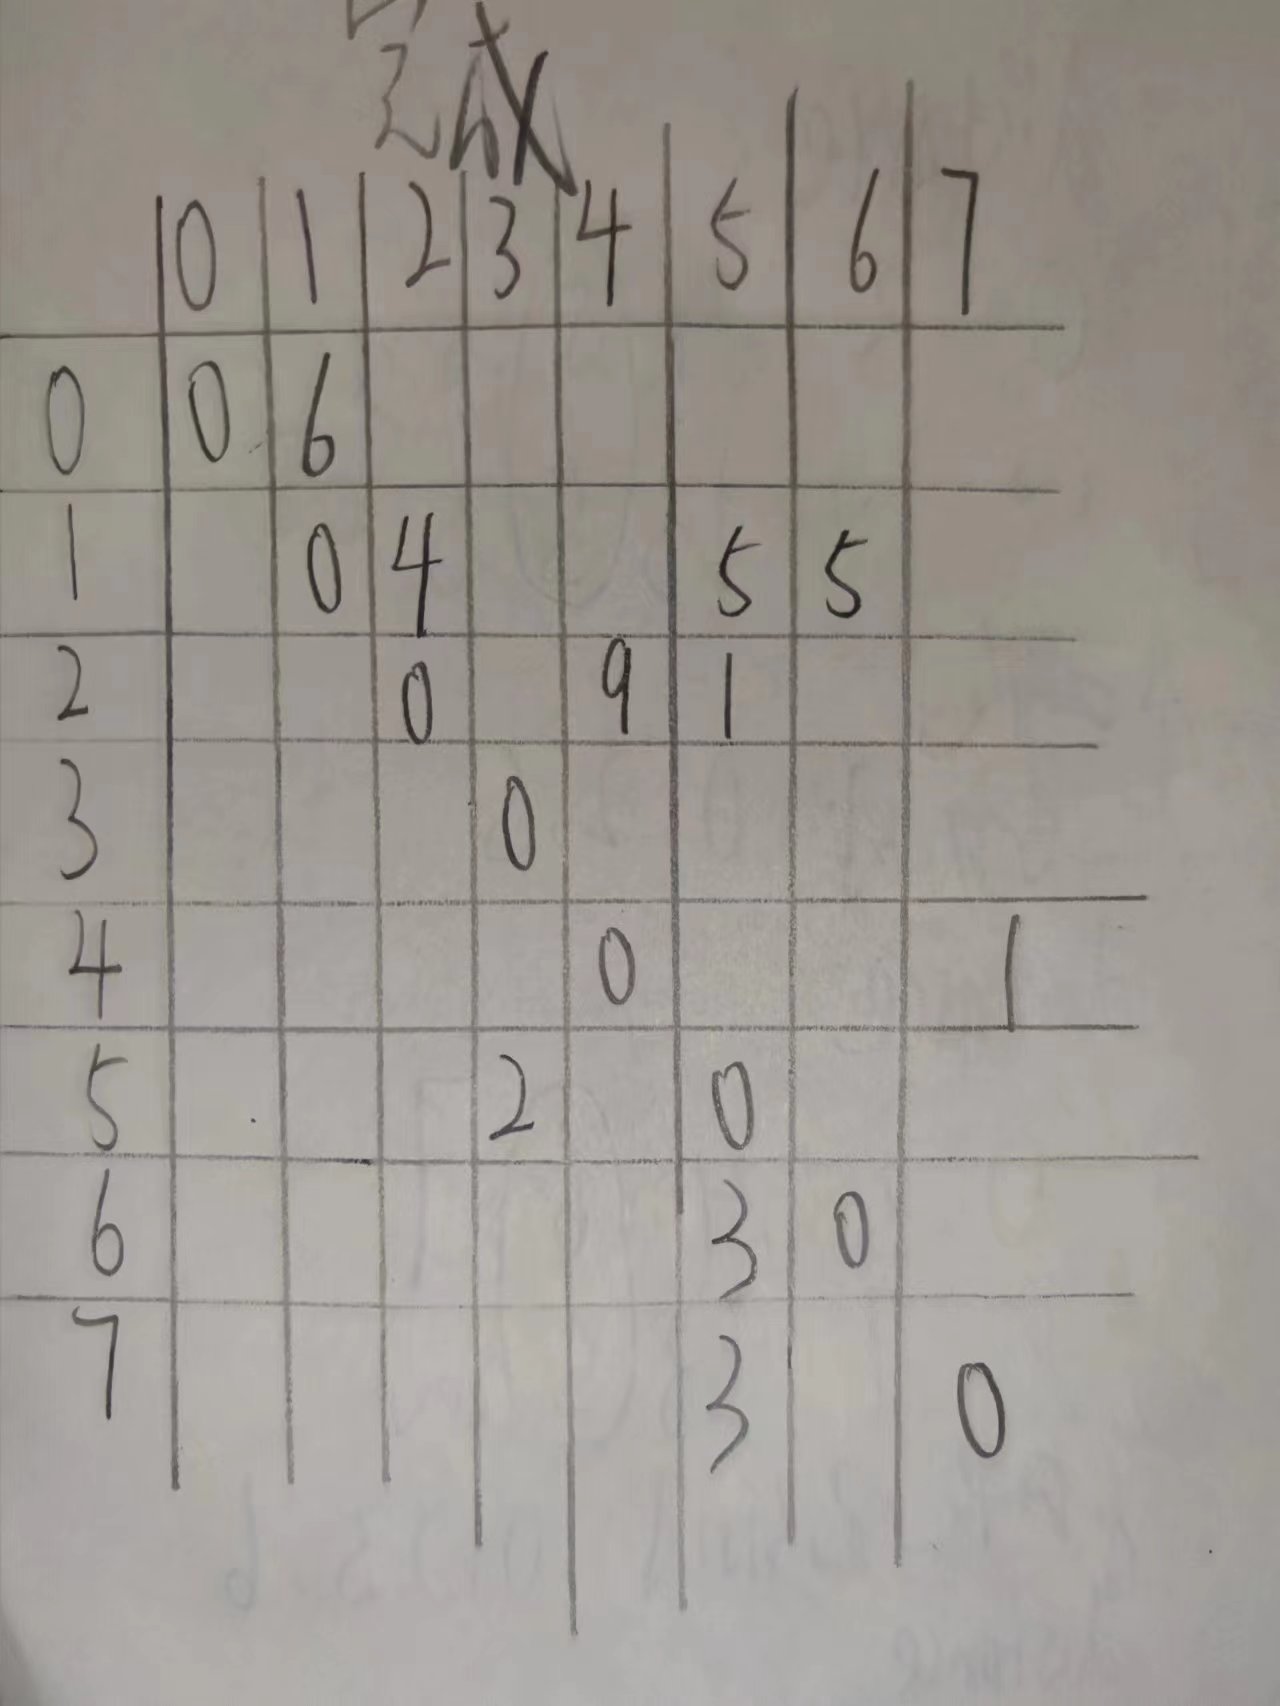 0 1 2 3 4 5 6 7
0 0 6
1 0 4 5 5
2 0 9 1
3 0
4 0 1
5 2 0
6 3 0
7 3 0